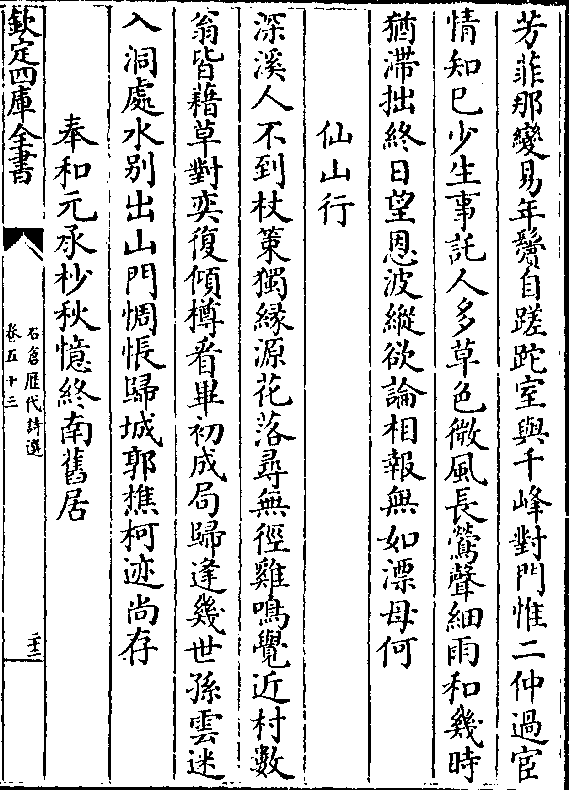 芳菲那變易年鬢自蹉跎室與千峰對門惟二仲過宦
情知已少生事託人多草色微風長鶯聲細雨和幾時
猶滯拙終日望恩波縱欲論相報無如漂母何
仙山行
深溪人不到杖策獨緣源花落尋無徑雞鳴覺近村數
翁皆藉草對奕復傾樽看畢初成局歸逢幾世孫雲迷
入洞處水別出山門惆悵歸城郭樵柯迹尚存
奉和元承杪秋憶終南舊居
欽定四庫全書
石倉歷代詩選
卷五十三
二十三